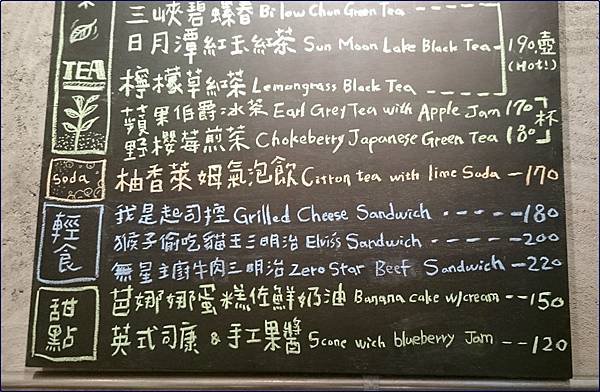 三峽碧螺春 Bi low Chun Green Tea
日月潭紅玉紅茶 Sun Moon Lake Black Tea - 190.壺
(Hot!)
TEA
檸檬草紅茶 Lemongrass Black Tea
蘋果伯爵冰茶 Earl Grey Tea with Apple Jam 170
杯
野櫻莓煎茶 Chokeberry Japanese Green Tea 180
Soda 柚香萊姆氣泡飲 Citron tea with lime Soda - 170
輕食
我是起司控 Grilled Cheese Sandwich - - - - - 180
猴子偷吃貓王三明治 Elvis's Sandwich - - - - - 200
無星主廚牛肉三明治 Zero Star Beef Sandwich - 220
甜點
芭娜娜蛋糕佐鮮奶油 Banana cake w/cream - - 150
英式司康 & 手工果醬 Scone wich blueberry Jam - - - 120